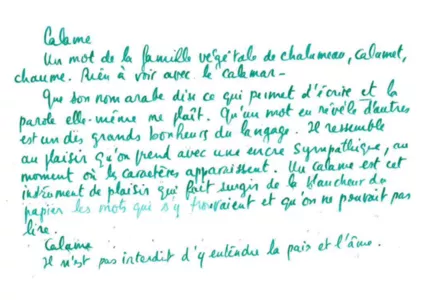 Calame
Un mot de la famille végétale de chalumeau, calumet,
chaume. Rien à voir avec le calamar -
Que son nom arabe dise ce qui permet d'écrire et la
parole elle-même me plaît. Qu'un mot en révèle d'autres
est un des grands bonheurs du langage. Il ressemble
au plaisir qu'on prend avec une encre sympathique, au
moment où les caractères apparaissent. Un calame est cet
instrument de plaisir qui fait surgir de la blancheur du
papier les mots qui s'y trouvaient et qu'on ne pouvait pas
lire.
Calame
Il n'est pas interdit d'y entendre la paix et l'âme.